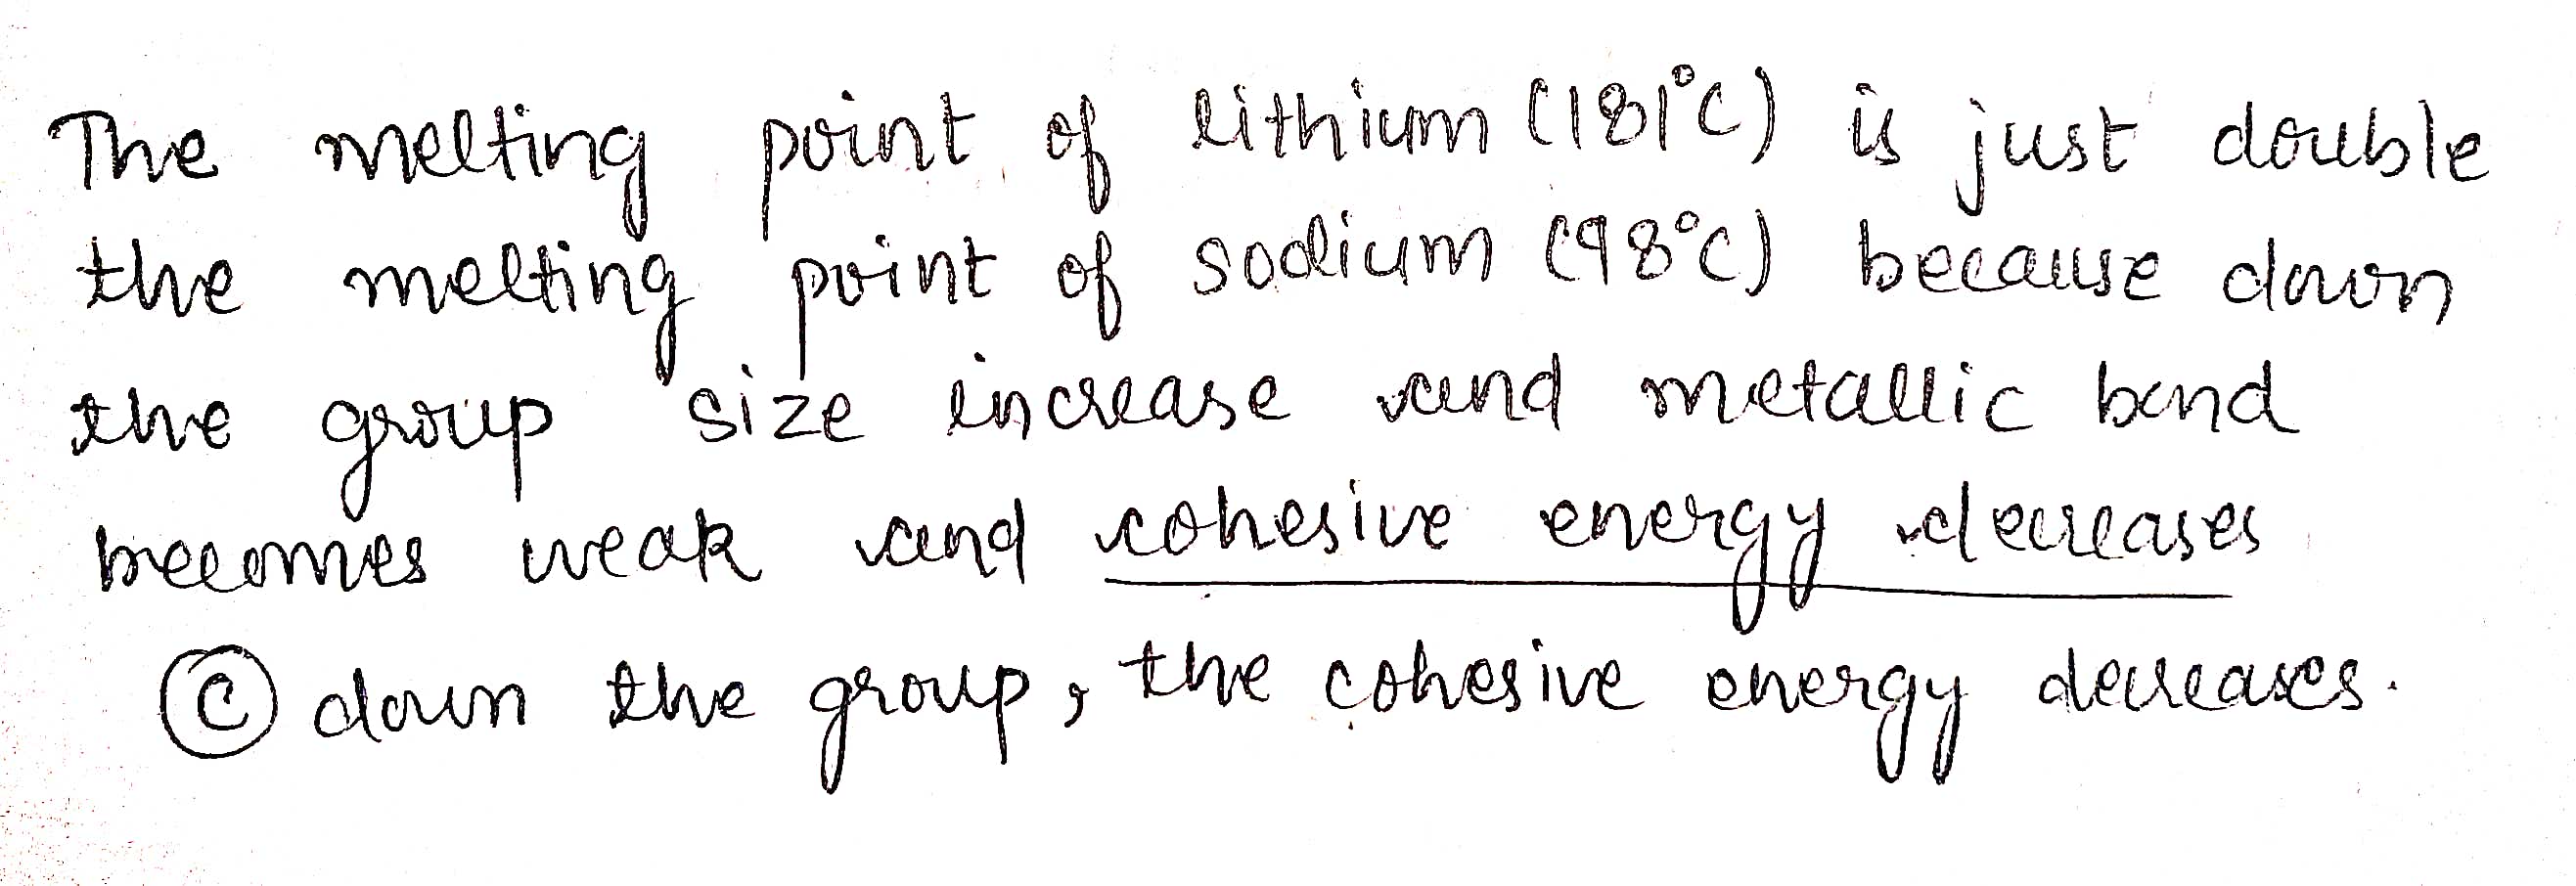 The melting point of lithium (181°C) is just double
the melting point of sodium (98°C) because down
the group size increase and metallic bond
becomes weak and cohesive energy decreases
Ⓒ down the group, the cohesive energy decreases.